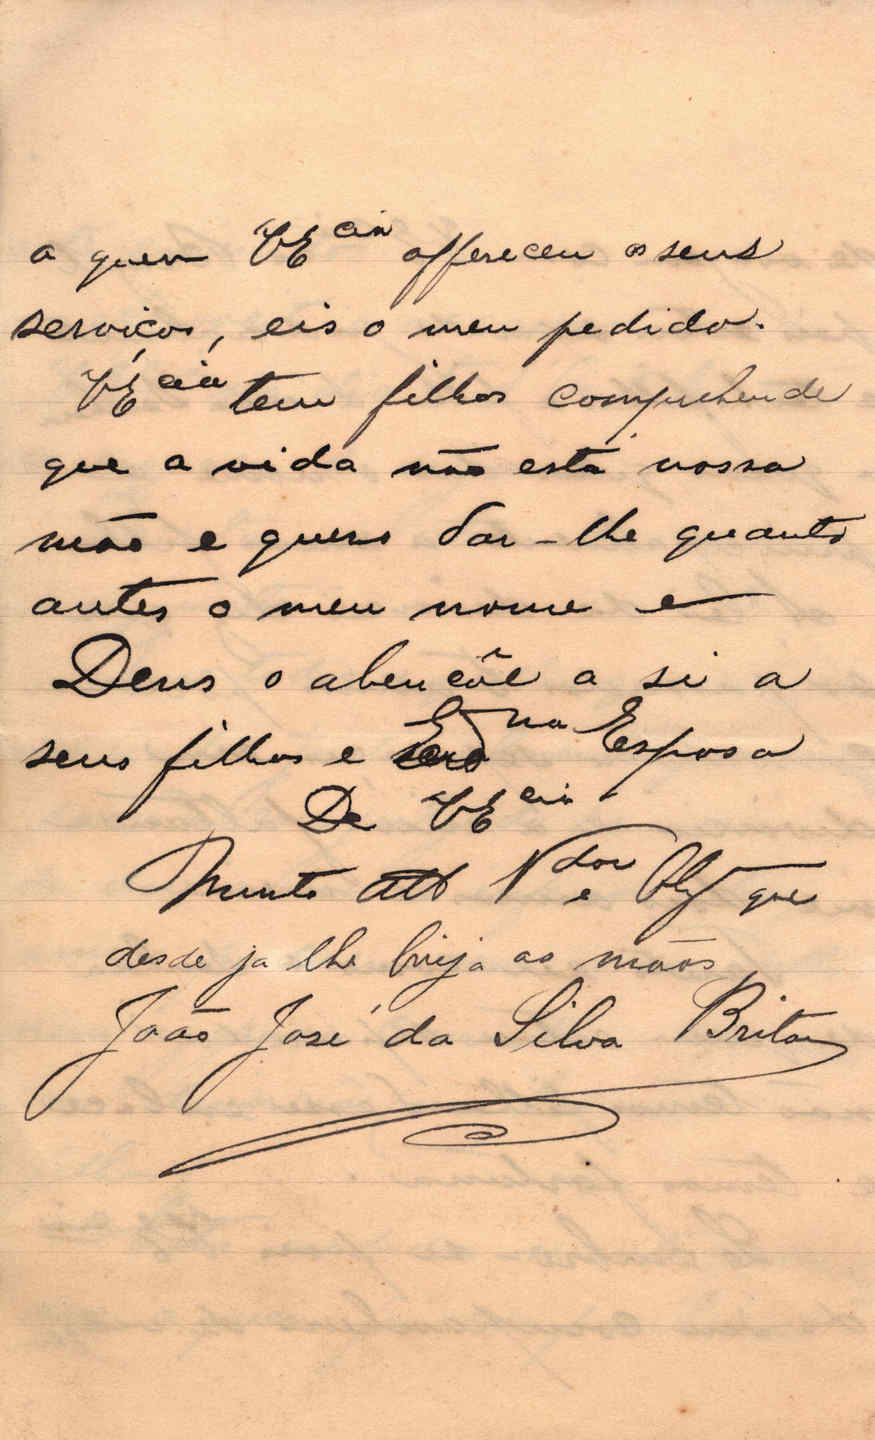 a quem VE.cia offereceu os seus
serviços, eis o meu pedido.
VE.cia tem filhos comprehende
que a vida não está nossa
mão e quero dar-lhe quanto
antes o meu nome e
Deus o abençõe a si a
seus filhos e Esposa
De VE.cia
Munto Att Vdor e Obg que
desde ja lhe beija as mãos
João José da Silva Brito